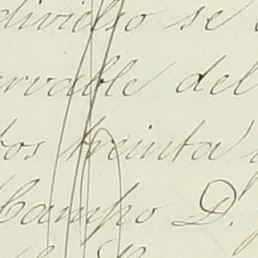 dividiso se
rvable del
tos treinta y
Campo D.